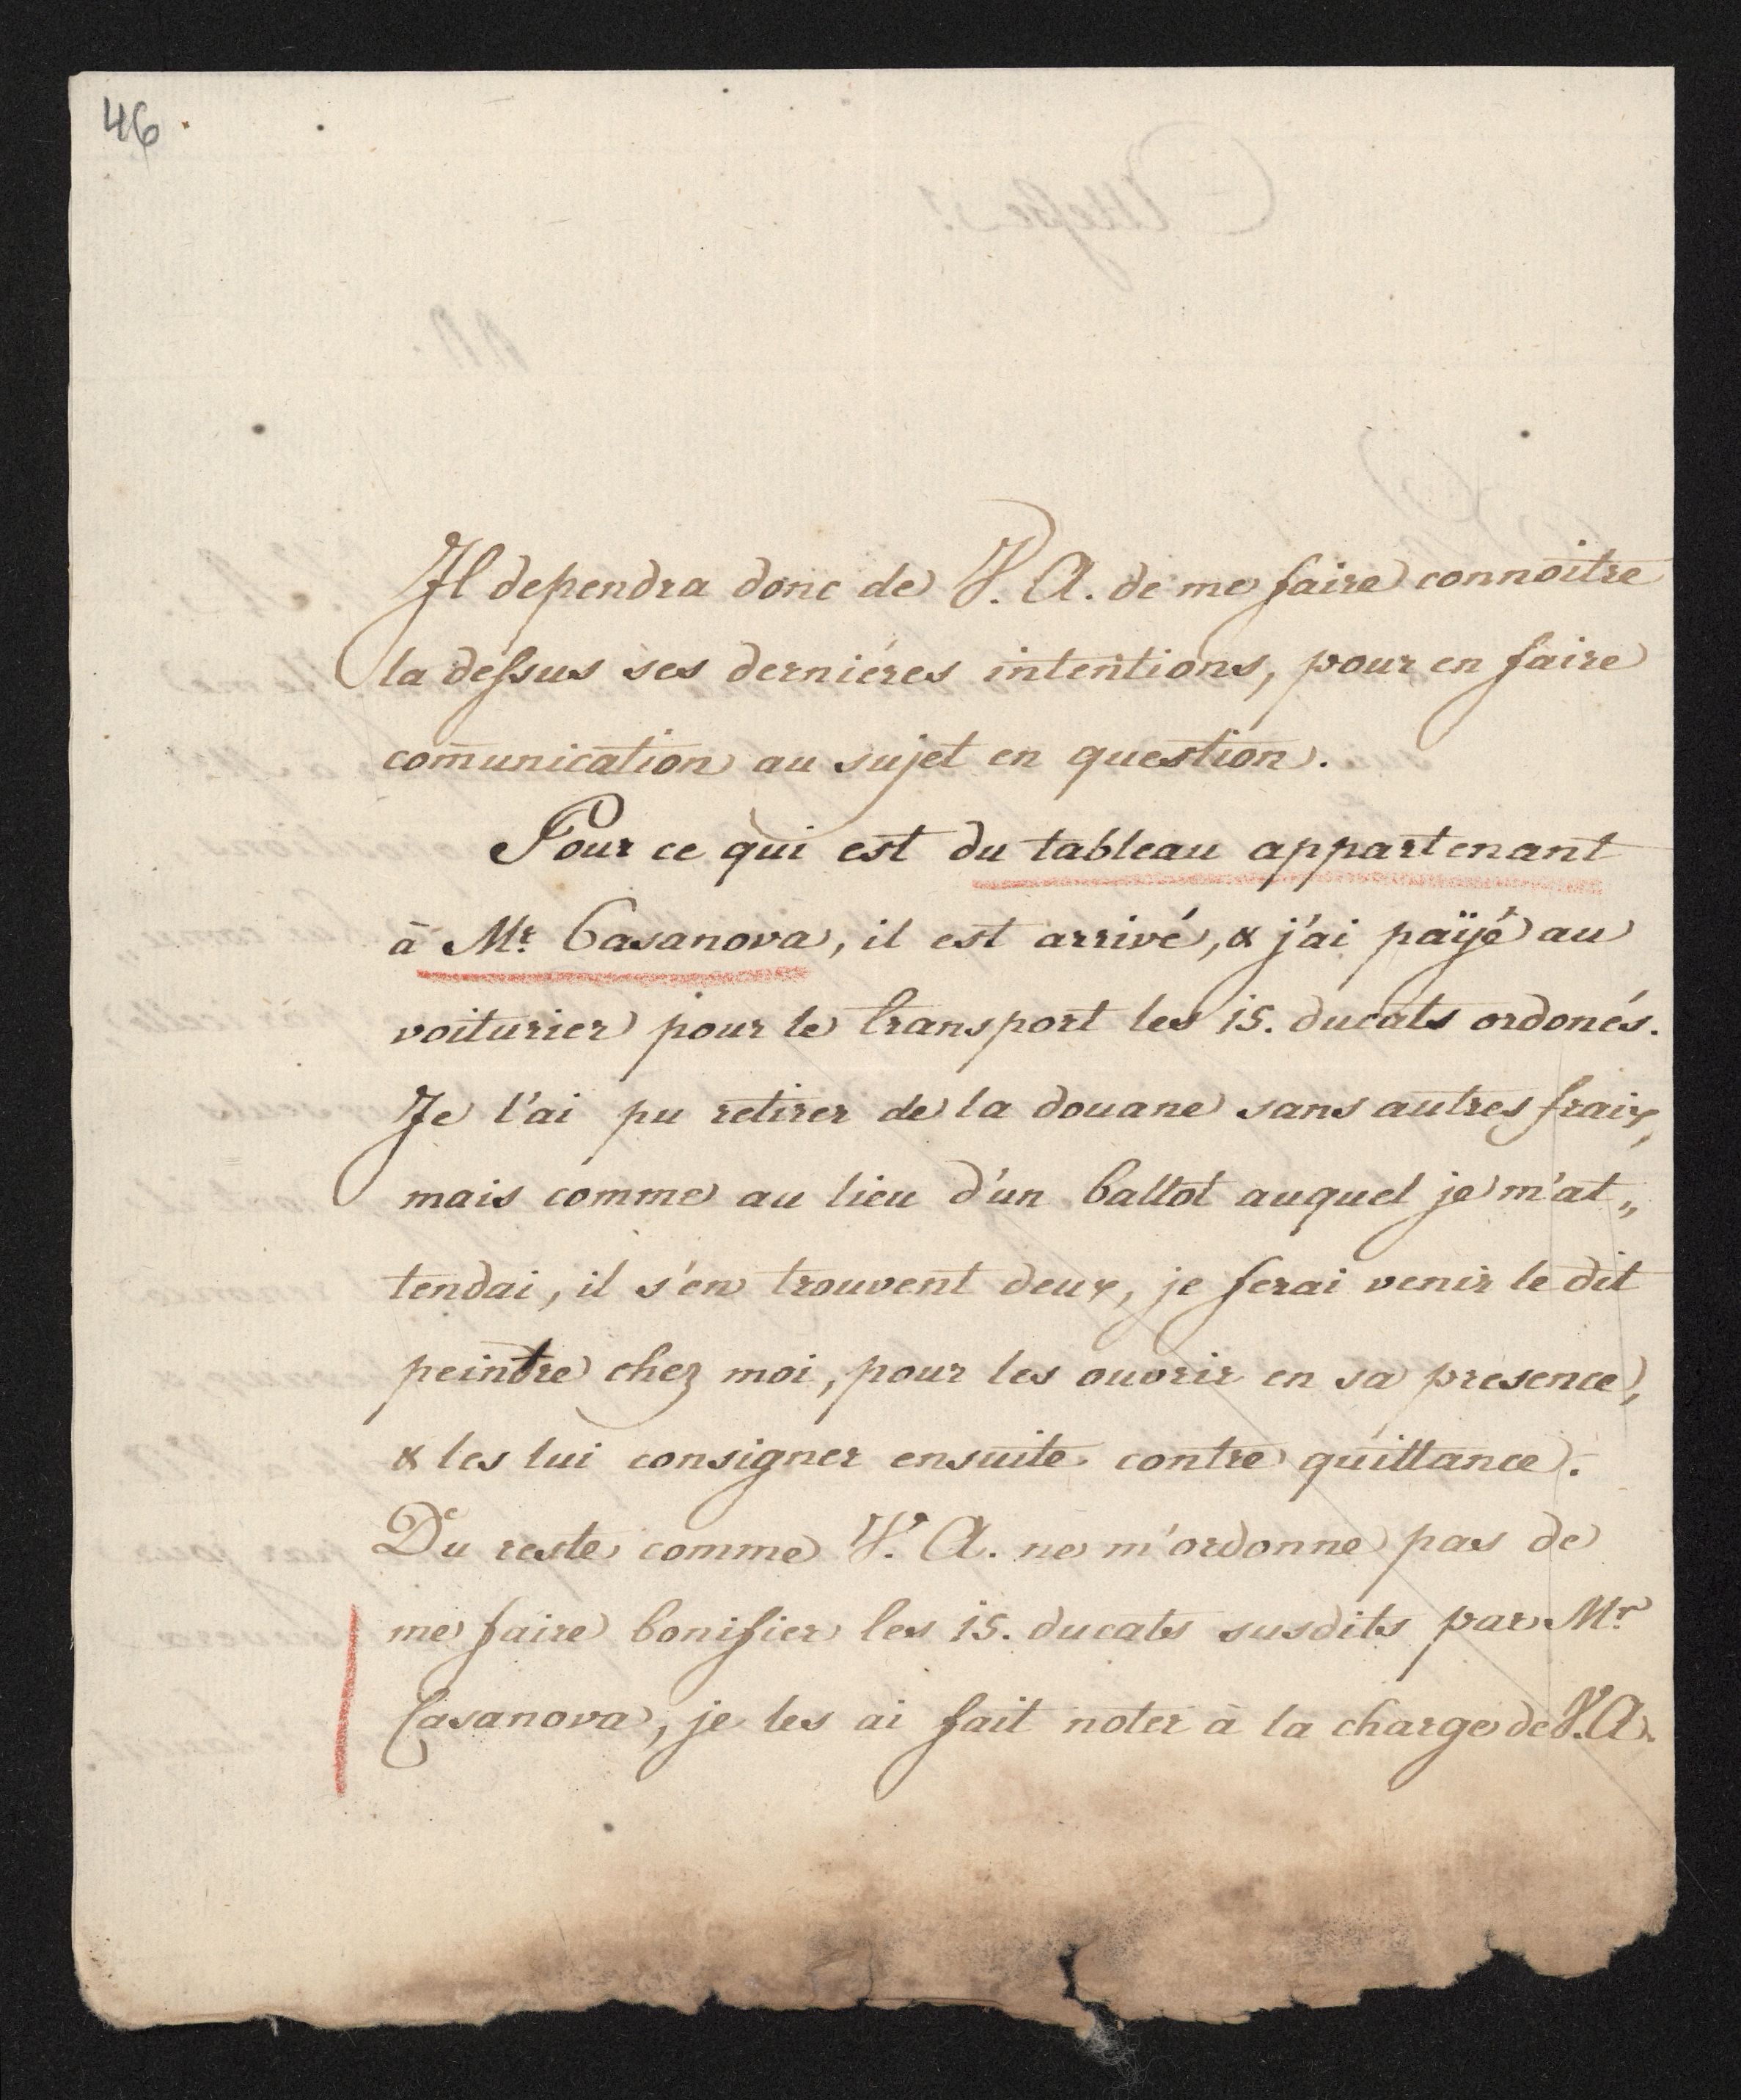 46
Il dependra donc de V. A. de me faire connoitre
la dessus ses derniéres intentions, pour en faire
com̄unication au sujet en question.
Pour ce qui est du tableau appartenant
à Mr. Casanova, il est arrivé, & j'ai païjé au
voiturier pour le transport les 15. ducats ordonés.
Je l'ai pu retirer de la douane sans autres fraix,
mais comme au lieu d'un ballot auquel je m'at„
tendai, il s'en trouvent deux, je ferai venir le dit
peintre chez moi, pour les ouvrir en sa presence,
& les lui consigner ensuite contre quittance.
Du reste comme V. A. ne m'ordonne pas de
me faire bonifier les 15. ducats susdits par Mr.
Casanova, je les ai fait noter à la charge de V. A.